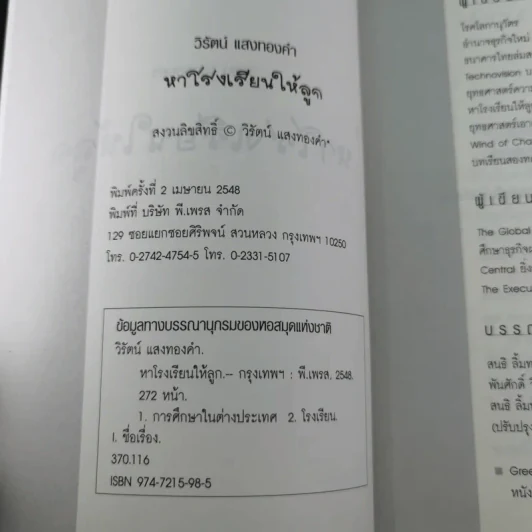 วิรัตน์ แสงทองคำ
หาโรงเรียนให้ลูก
สงวนลิขสิทธิ์ © วิรัตน์ แสงทองคำ
พิมพ์ครั้งที่ 2 เมษายน 2548
พิมพ์ที่ บริษัท พี.เพรส จำกัด
129 ซอยแยกซอยศิริพจน์ สวนหลวง กรุงเทพฯ 10250
โทร. 0-2742-4754-5 โทร. 0-2331-5107
ข้อมูลทางบรรณานุกรมของหอสมุดแห่งชาติ
วิรัตน์ แสงทองคำ.
หาโรงเรียนให้ลูก.-- กรุงเทพฯ : พี.เพรส, 2548.
272 หน้า.
1. การศึกษาในต่างประเทศ 2. โรงเรียน.
I. ชื่อเรื่อง.
370.116
ISBN 974-7215-98-5
โรคโลกานุวัตร
อำนาจธุรกิจใหม่
ธนาคารไทยล่มส
Technovision แ
ยุทธศาสตร์ควา
หาโรงเรียนให้ลู
ยุทธศาสตร์เอา
Wind of Cha
บทเรียนสองท
ผู้เขียน
The Global
ศึกษาธุรกิจ
Central ยิ่ง
The Execu
บรรณ
สนธิ ลิ้มท
พันศักดิ์
สนธิ ลิ้ม
(ปรับปรุง
■ Gree
หนัง